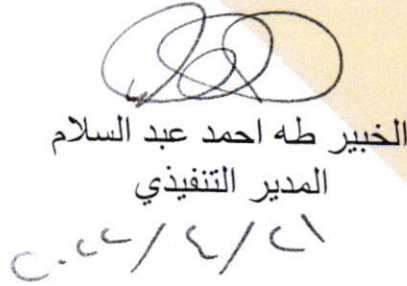 الخبير طه احمد عبد السلام
المدير التنفيذي
٢٠٢٢/٤/٢١